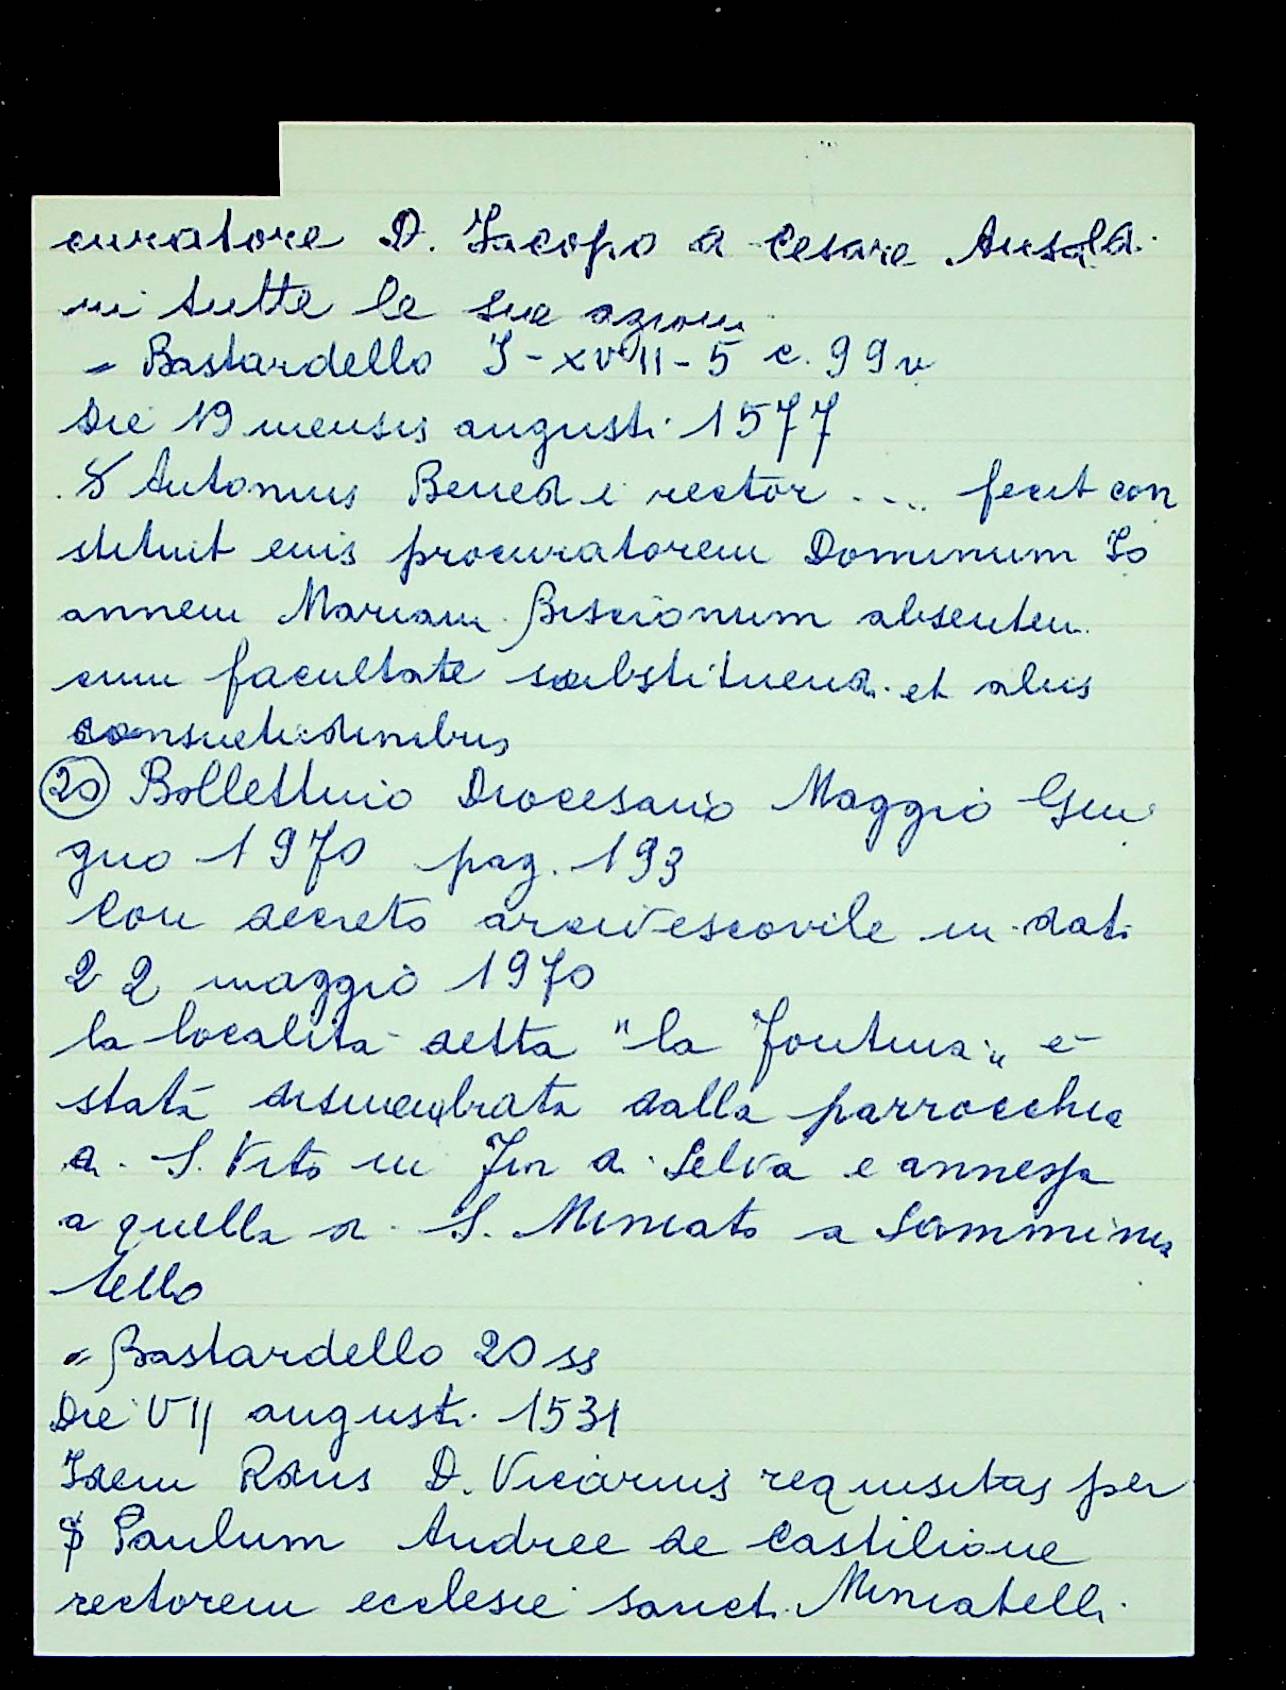 curatore D. Jacopo di Cesare Ansaldi
in tutte le sue azioni
= Bastardello I-XVIII-5 c. 99v
Die 19 mensis augusti 1577
S Antonius Benedi rector .... fecit con
stituit eius procuratorem Dominum Io
annem Mariam Biscionum absentem
cum facultate substituendi et aliis
consuetudinibus
(20) Bollettino Diocesano Maggio Giu
gno 1970 pag. 193
Con decreto arcivescovile in dati
22 maggio 1970
la località detta "la Fontina" è
stata dismembrata dalla parrocchia
di S. Vito in Fior di Selva e annessa
a quella di S. Miniato a Samminia
tello
= Bastardello 20 ss
Die VII augusti 1531
Idem Rdus D. Vicarius requisitus per
S Paulum Andree de Castilione
rectorem ecclesie sancti Miniatelli